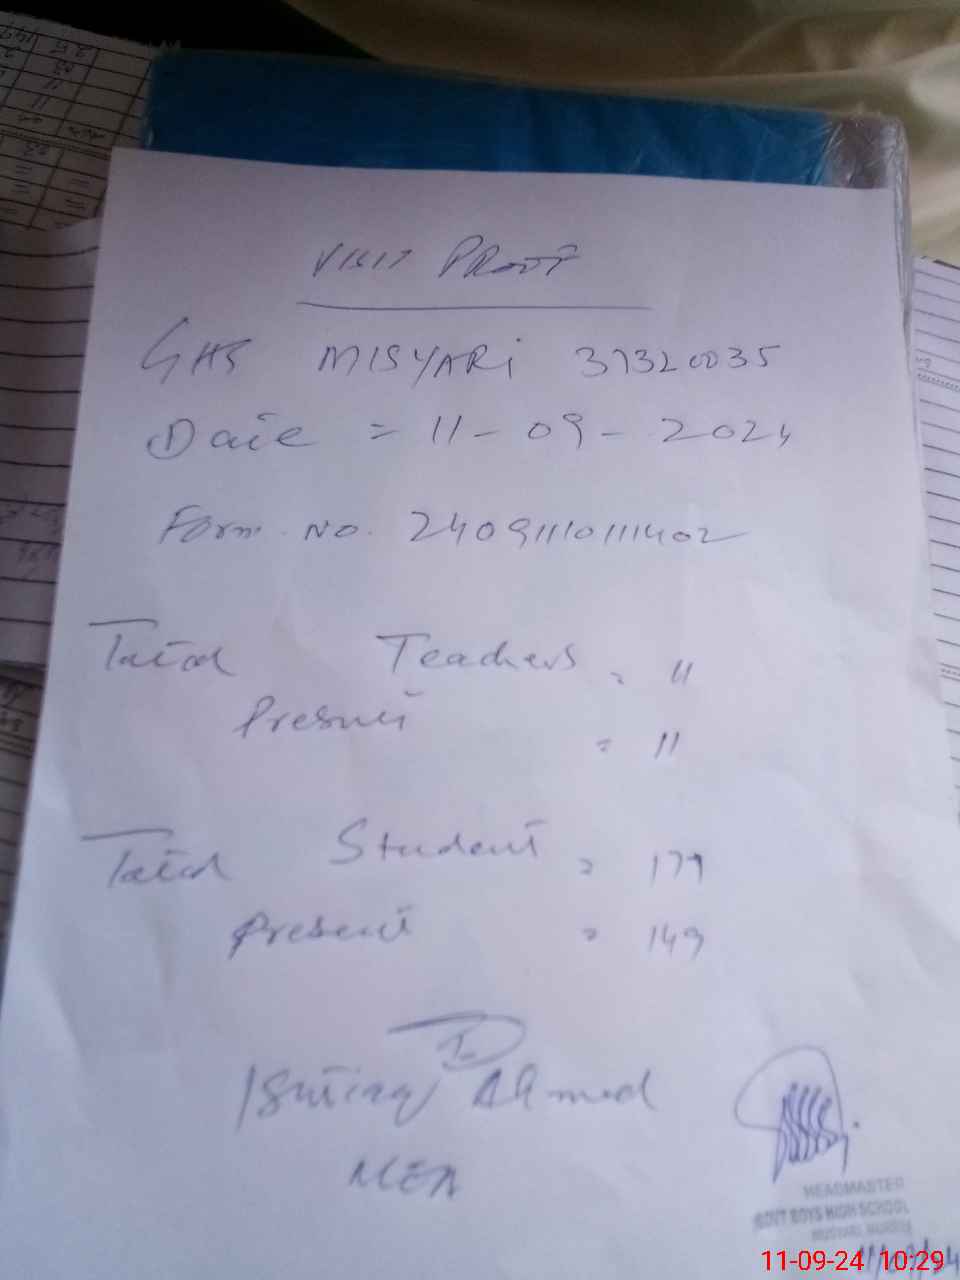 VISIT PROOF
GHS MISYARI 37320035
Date = 11-09-2024
Form No. 24091110111402
Total Teachers = 11
Present = 11
Total Student = 179
Present = 149
Ishtiaq Ahmed
MEA
HEADMASTER
GOVT BOYS HIGH SCHOOL
11-09-24 10:29